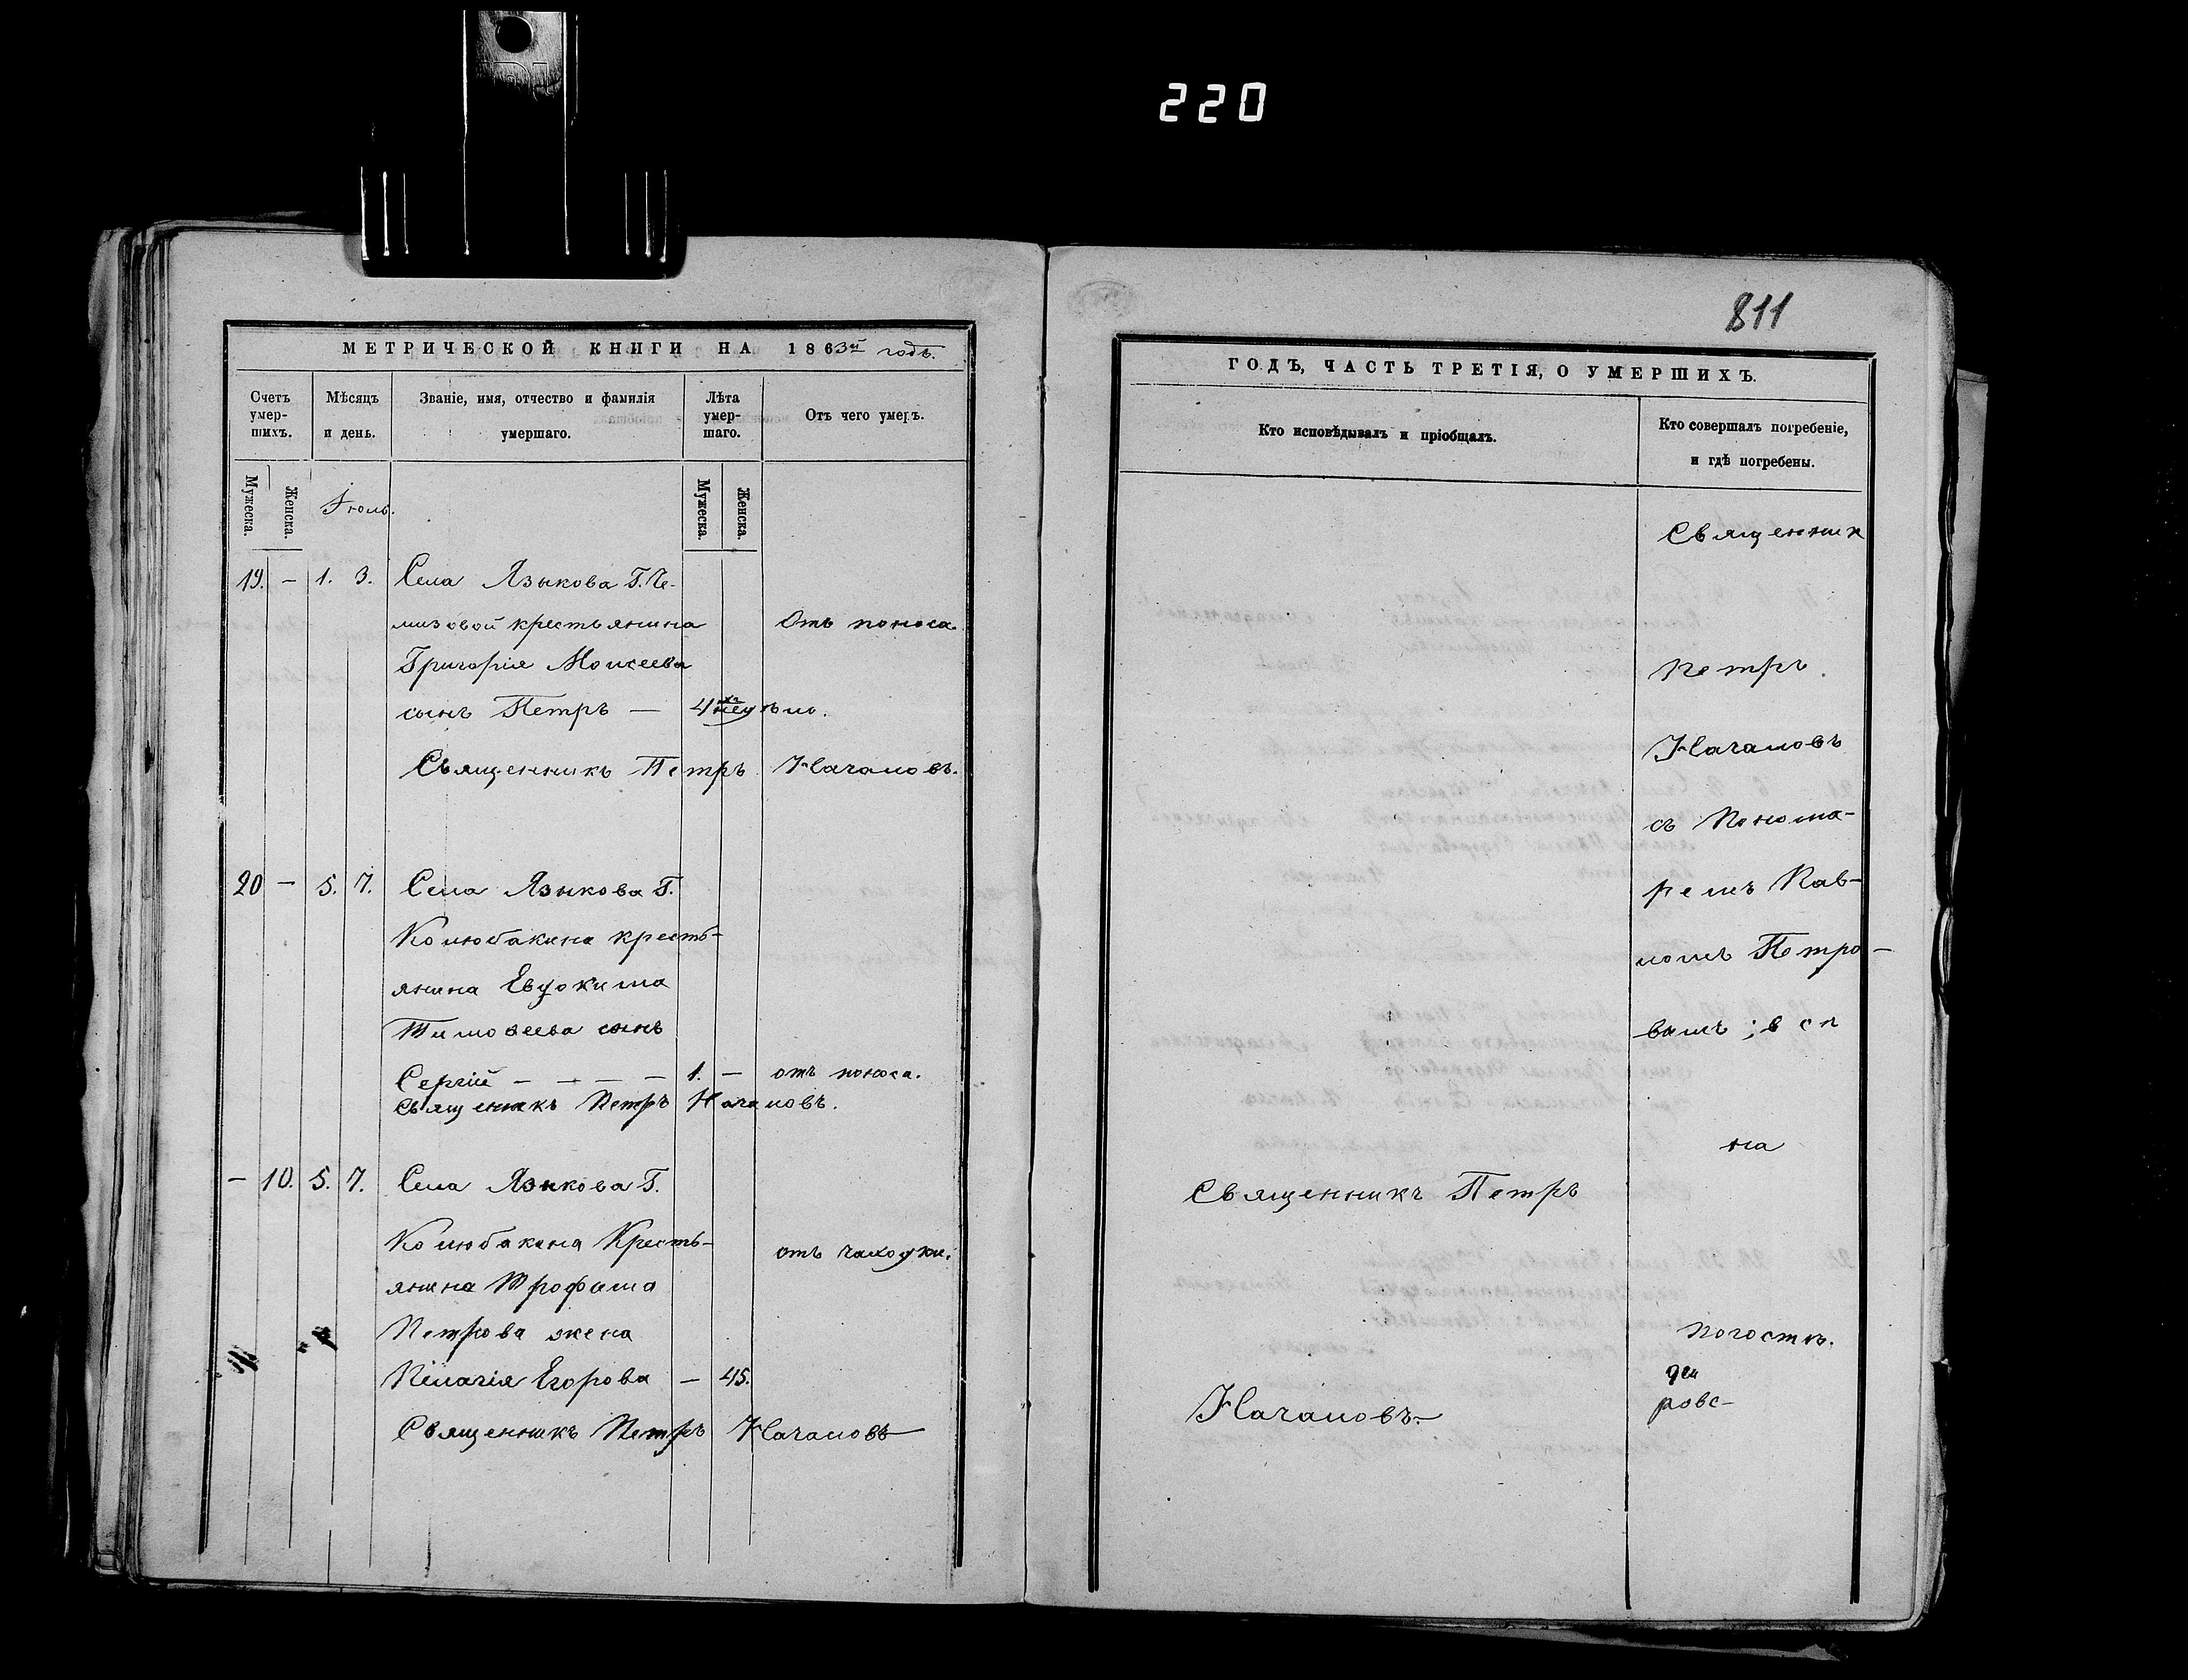 220
811
МЕТРИЧЕСКОЙ КНИГИ НА 1863й годъ.
Счетъ умер-шихъ.
Мѣсяцъ и день.
Званіе, имя, отчество и фамилія умершаго.
Лѣта умер-шаго.
Отъ чего умеръ.
Мужеска.
Женска.
Іюль.
Мужеска.
Женска.
19. – 1. 3. Села Языкова Г. Че-
мизовой крестьянина Отъ поноса.
Григорія Моисеева
сынъ Петръ — 4хъ недѣль.
Священникъ Петръ Началовъ.
20 – 5. 7. Села Языкова Г.
Колюбакина кресть-
янина Евдокима
Тимоѳеева сынъ
Сергій – – – – 1. – отъ поноса.
Священникъ Петръ Началовъ.
– 10. 5. 7. Села Языкова Г.
Колюбакина Кресть-
отъ чаходки.
янина Трофима
Петрова жена
Пелагія Егорова – 45.
Священникъ Петръ Началовъ
ГОДЪ, ЧАСТЬ ТРЕТІЯ, О УМЕРШИХЪ.
Кто исповѣдывалъ и пріобщалъ.
Кто совершалъ погребеніе,
и гдѣ погребены.
Священник
Петръ.
Началовъ
съ Понома-
ремъ Пав-
ломъ Петро-
вымъ;
на
Священникъ Петръ
погостѣ.
Началовъ.